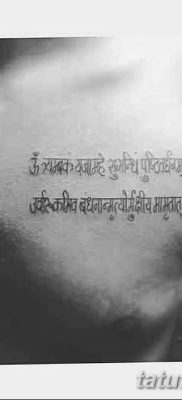 ॐ त्र्यम्बकं यजामहे सुगन्धिं पुष्टिवर्धनम्
उर्वारुकमिव बन्धनान्मृत्योर्मुक्षीय मामृतात्
tatu